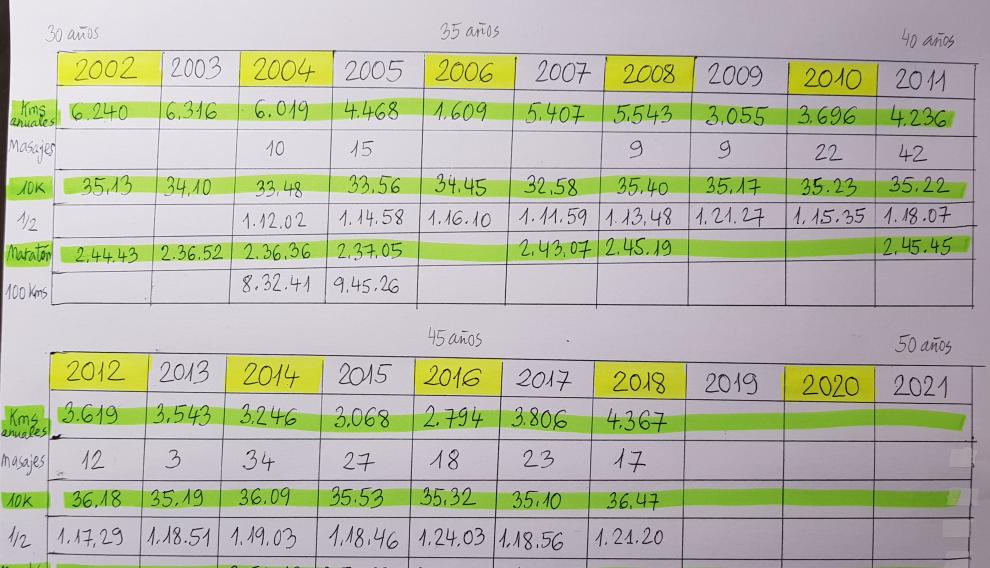 30 años 35 años 40 años
2002 2003 2004 2005 2006 2007 2008 2009 2010 2011
Kms anuales 6.240 6.316 6.019 4.468 1.609 5.407 5.543 3.055 3.696 4.236
Masajes 10 15 9 9 22 42
10K 35,13 34,10 33,48 33.56 34.45 32,58 35.40 35,17 35.23 35,22
1/2 1.12.02 1.14.58 1.16.10 1.11.59 1.13,48 1.21.27 1.15.35 1.18.07
Maratón 2,44.43 2.36.52 2.36.36 2.37.05 2.43,07 2.45.19 2.45.45
100 Kms 8.32.41 9.45.26
45 años 50 años
2012 2013 2014 2015 2016 2017 2018 2019 2020 2021
Kms anuales 3.619 3.543 3.246 3.068 2.794 3.806 4.367
Masajes 12 3 34 27 18 23 17
10K 36,18 35,19 36.09 35.53 35,32 35,10 36,47
1/2 1.17,29 1.18.51 1.19.03 1.18.46 1.24.03 1.18.56 1.21.20